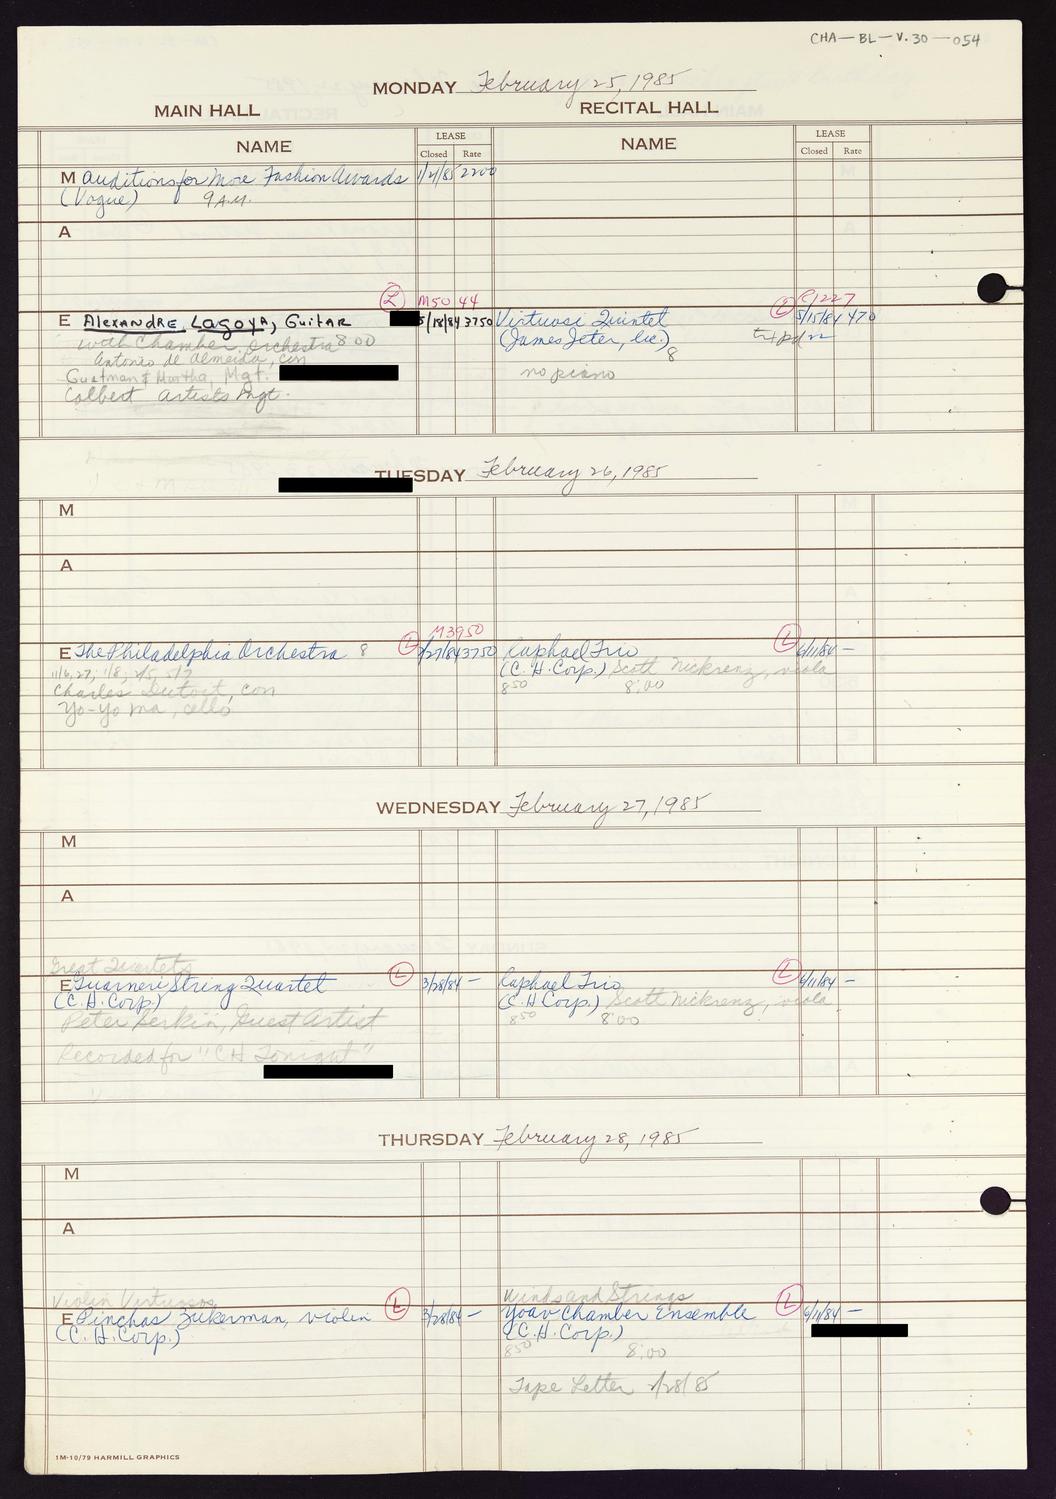 CHA-BL-V.30-054
MONDAY February 25, 1985
MAIN HALL RECITAL HALL
NAME LEASE Closed Rate NAME LEASE Closed Rate
M Auditions for More Fashion Awards 1/21/85 2200
(Vogue) 9 A.M.
A
L M50 44 L
E ALEXANDRE LAGOYA, GUITAR 5/18/84 3750 Virtuosi Quintet 5/15/84 470
with Chamber Orchestra 8 00 (James Jeter, lie.) 8
Antonio de Almeida, con
Gurtman & Murtha, Mgt. no piano
Colbert Artists Mgt.
TUESDAY February 26, 1985
M
A
M3950
E The Philadelphia Orchestra 8 L 3750 Raphael Trio L 6/11/84 -
11/6, 27, 1/8, 2/5, 5/7 (C.H. Corp.) Scott Nickrenz, viola
Charles Dutoit, con 850 8:00
Yo-Yo Ma, cello
WEDNESDAY February 27, 1985
M
A
Great Quartets
E Guarneri String Quartet L 3/28/84 - Raphael Trio L 6/11/84 -
(C.H. Corp.) (C.H. Corp.) Scott Nickrenz, viola
Peter Serkin, Guest Artist 850 8:00
Recorded for "CH Tonight"
THURSDAY February 28, 1985
M
A
Violin Virtuosos Winds and Strings
E Pinchas Zukerman, violin L 3/28/84 - Yoav Chamber Ensemble L 6/11/84 -
(C.H. Corp.) (C.H. Corp.)
850 8:00
Tape Letter 2/28/85
1M-10/79 HARMILL GRAPHICS